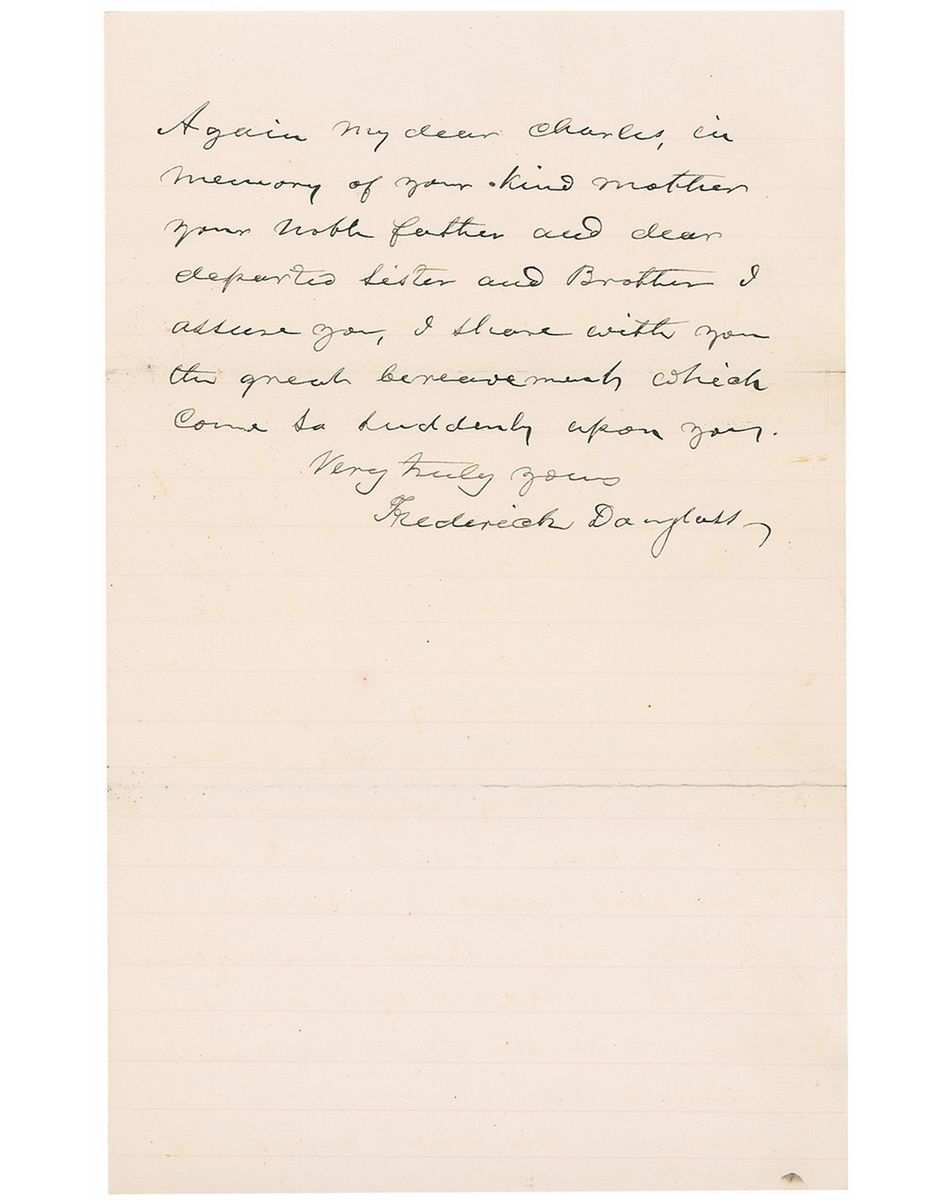 Again my dear Charles, in
memory of your kind mother
your noble father and dear
departed sister and Brother I
assure you, I share with you
the great bereavement which
come so suddenly upon you.
Very truly yours
Frederick Douglass